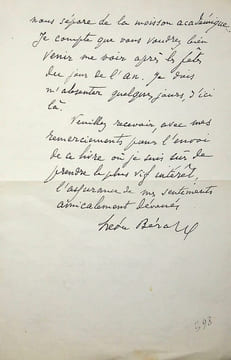 nous sépare de la moisson académique.
Je compte que vous voudrez bien
venir me voir après les fêtes
du jour de l'an. Je dois
m'absenter quelques jours, d'ici
là.
Veuillez recevoir, avec mes
remerciements pour l'envoi
de ce livre où je suis sûr de
prendre le plus vif intérêt,
l'assurance de mes sentiments
amicalement dévoués
Léon Bérard